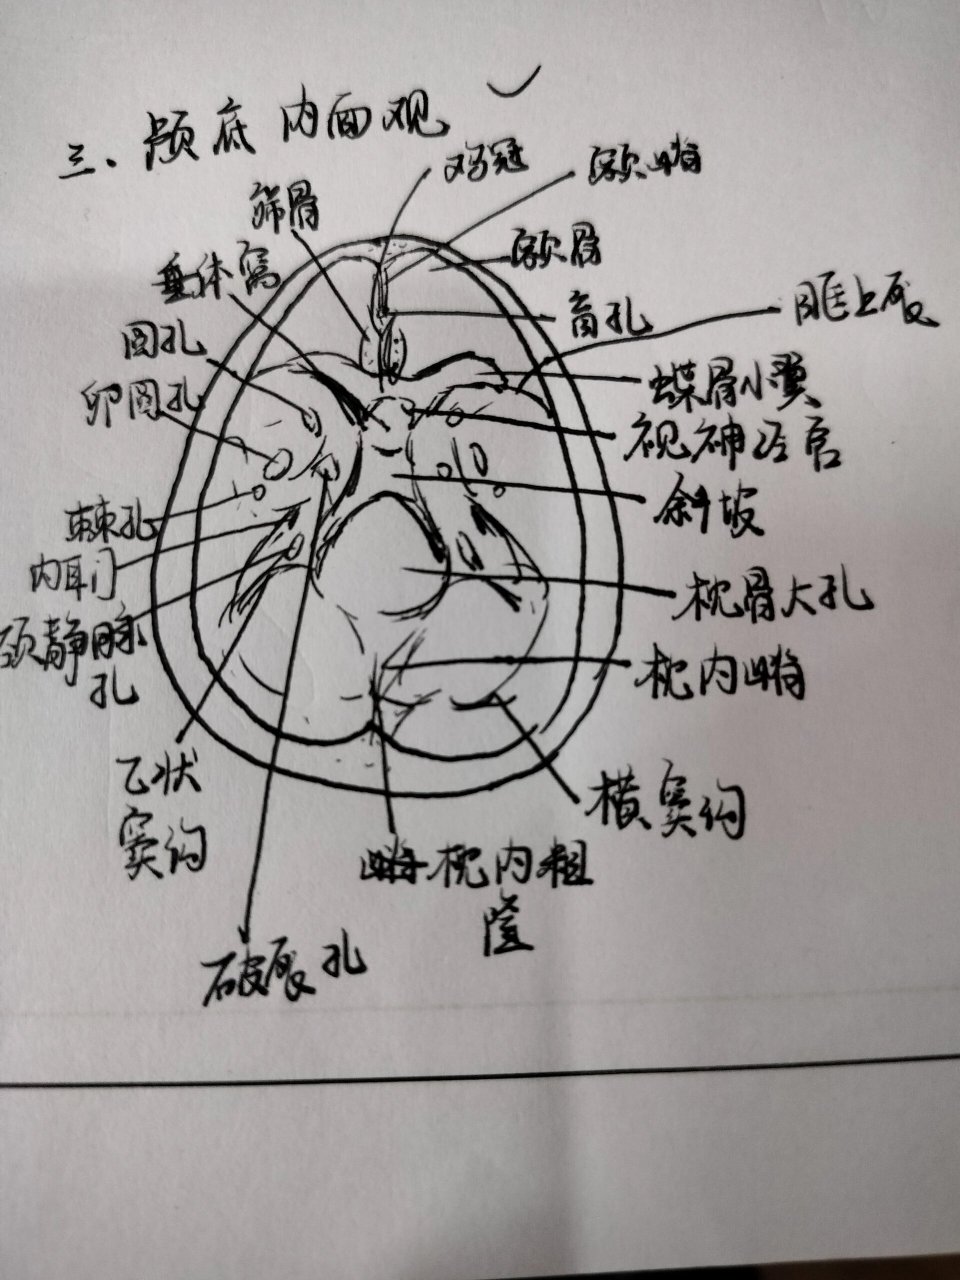 三、颅底内面观
鸡冠
额嵴
筛骨
额骨
垂体窝
盲孔
眶上裂
圆孔
蝶骨小翼
卵圆孔
视神经管
斜坡
棘孔
内耳门
枕骨大孔
颈静脉
孔
枕内嵴
乙状
窦沟
横窦沟
枕内粗
隆
破裂孔